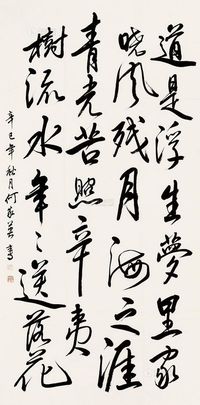 道是浮生夢里家
晓风残月海之涯
青光苦照辛夷
樹流水年々送落花
辛巳年秋月何家英書